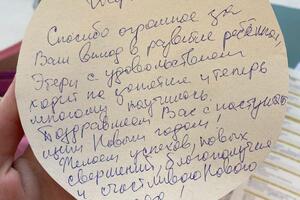 Спасибо огромное за
Ваш вклад в развитие ребёнка!
Этери с удовольствием
ходит на занятие и теперь
многому научилась.
Поздравляем Вас с наступаю
щим Новым годом!
Желаем успехов, новых
свершений, благополучия
и счастливого Нового